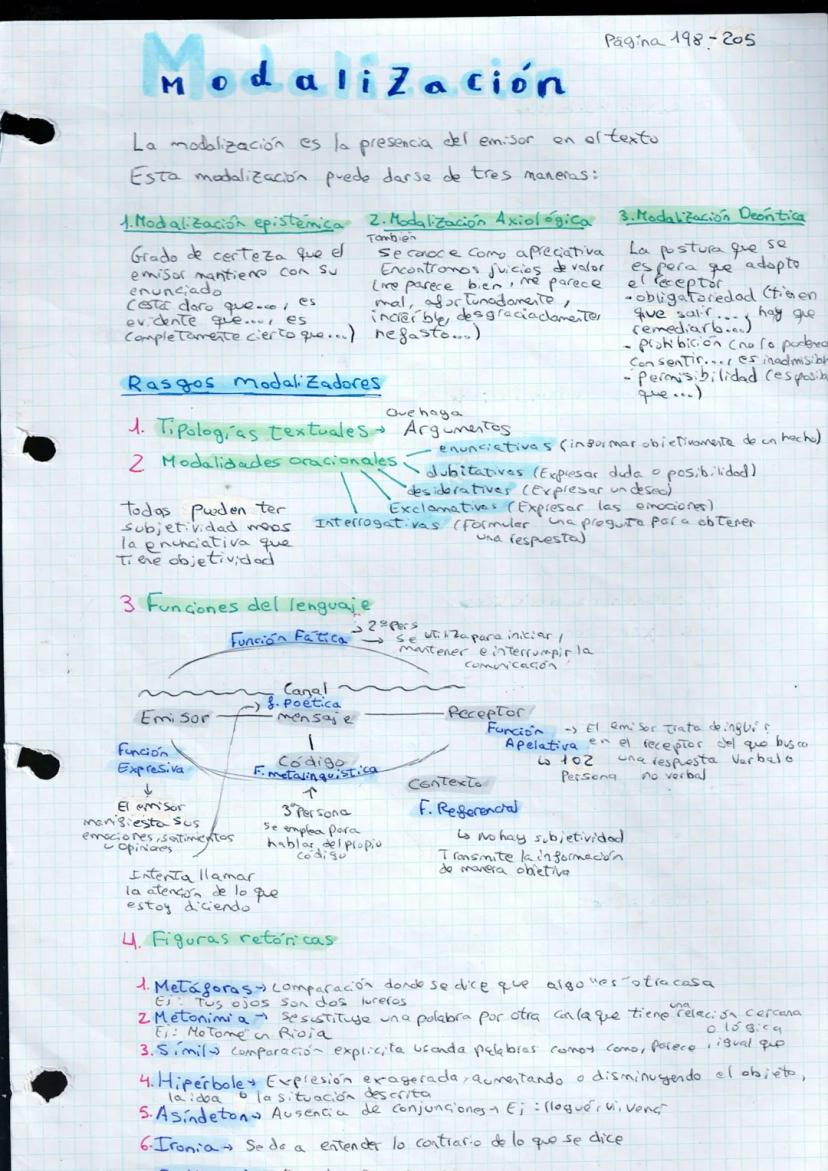 Página 198-205
Modalización
La modalización es la presencia del emisor en el texto
Esta modalización puede darse de tres maneras:
1. Modalización epistémica
Grado de certeza que el
emisor mantiene con su
enunciado
(está claro que..., es
evidente que..., es
completamente cierto que...)
2. Modalización Axiológica
También
se conoce como apreciativa
Encontramos juicios de valor
(me parece bien, me parece
mal, afortunadamente,
increíble, desgraciadamente,
nefasto...)
3. Modalización Deóntica
La postura que se
espera que adopte
el receptor
- obligatoriedad (tienen
que salir..., hay que
remediarlo...)
- prohibición (no lo podemo
consentir..., es inadmisibl
- permisibilidad (es posib
que...)
Rasgos modalizadores
1. Tipologías textuales → Que haya Argumentos
2 Modalidades oracionales
enunciativas (informar objetivamente de un hecho)
dubitativas (Expresar duda o posibilidad)
desiderativas (Expresar un deseo)
Exclamativas (Expresar las emociones)
Interrogativas (formular una pregunta para obtener
una respuesta)
Todas pueden ter
subjetividad meos
la enunciativa que
tiene objetividad
3 Funciones del lenguaje
Función Fática
→ 2ª Pers
→ se utiliza para iniciar,
mantener e interrumpir la
comunicación
Canal
→ f. poética
Emisor mensaje Receptor
Función Expresiva
↓
El emisor
manifiesta sus
emociones, sentimientos
u opiniones
Intenta llamar
la atención de lo que
estoy diciendo
Código
F. metalingüística
↑
3ª Persona
Se emplea para
hablar del propio
código
Función Apelativa
→ El emisor trata de influir
en el receptor del que busco
una respuesta verbal o
no verbal
↳ 1 o 2
Persona
Contexto
F. Referencial
↳ No hay subjetividad
Transmite la información
de manera objetiva
4. Figuras retóricas
1. Metáforas → comparación donde se dice que algo "es" otra cosa
Ej: Tus ojos son dos luceros
2 Metonimia → Se sustituye una palabra por otra con la que tiene una relación cercana
o lógica
Ej: Me tomé un Rioja
3. Símil → comparación explícita usando palabras como: como, parece, igual que
4. Hipérbole → Expresión exagerada, aumentando o disminuyendo el objeto,
la idea o la situación descrita
5. Asíndeton → Ausencia de conjunciones → Ej: llegué, vi, vencí
6. Ironia → Se da a entender lo contrario de lo que se dice